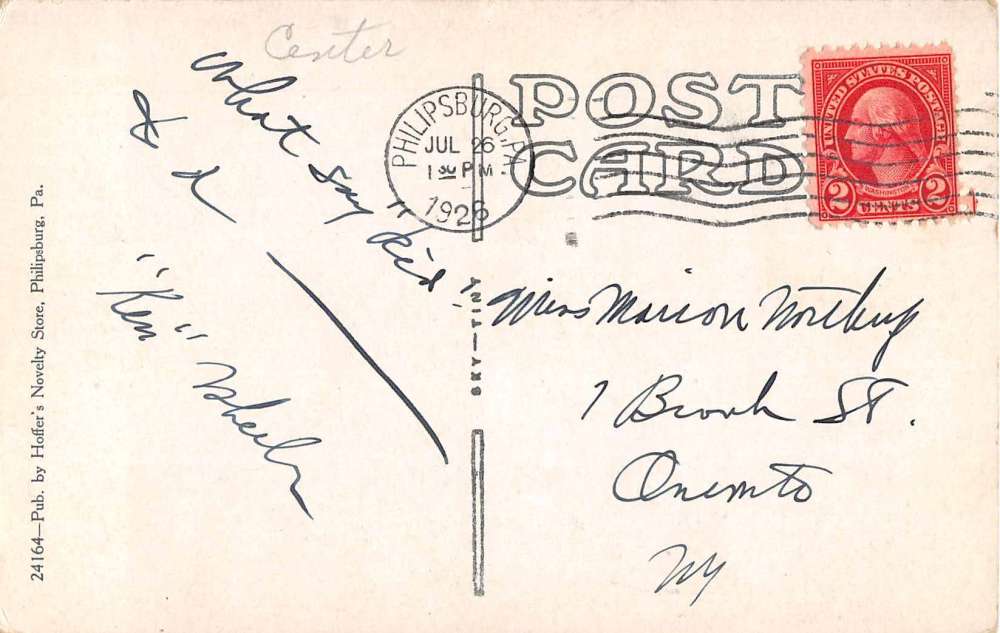 Center
What say "kid"
& d
"Ken" Wheeler
24164—Pub. by Hoffer's Novelty Store, Philipsburg, Pa.
POST
CARD
PHILIPSBURG, PA.
JUL 26
1 30 PM
1928
UNITED STATES POSTAGE
WASHINGTON
2 CENTS 2
SKY-TINT
Miss Marion Northup
7 Brook St.
Oneonta
NY